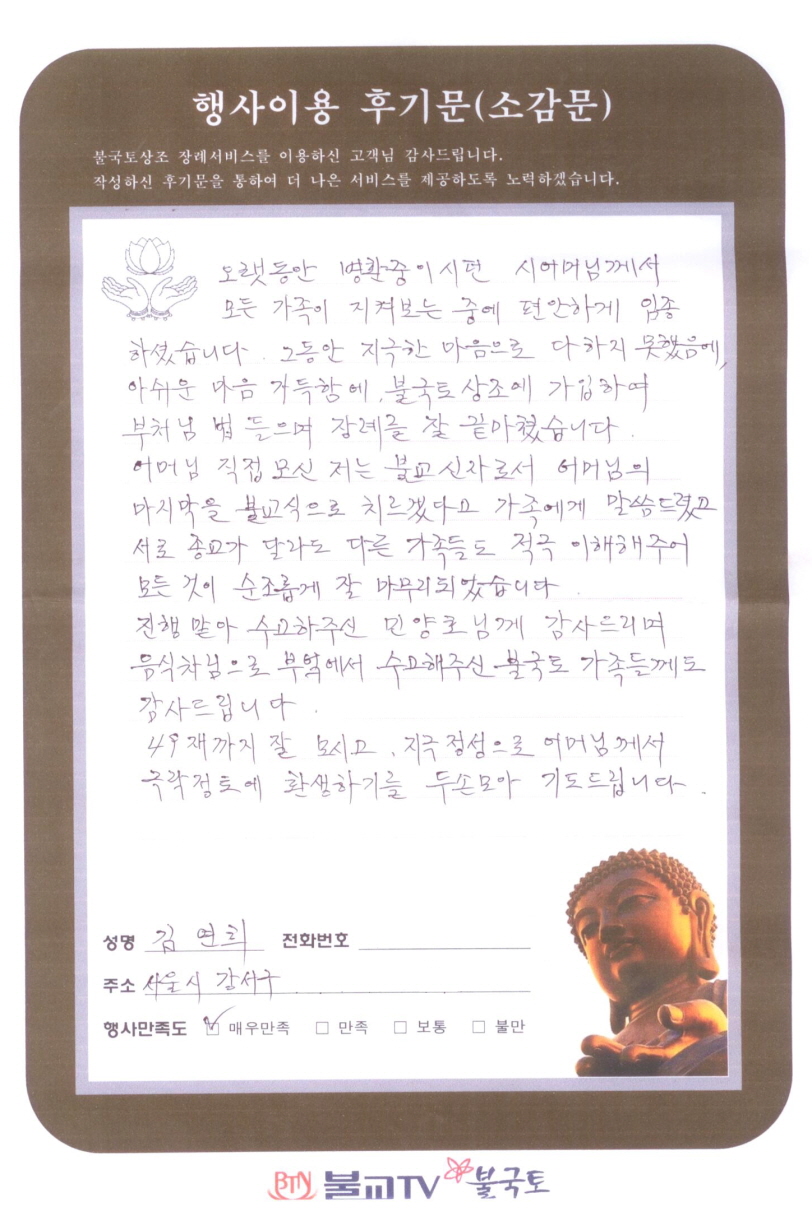 행사이용 후기문(소감문)
불국토상조 장례서비스를 이용하신 고객님 감사드립니다.
작성하신 후기문을 통하여 더 나은 서비스를 제공하도록 노력하겠습니다.
오랫동안 병환중이시던 시어머님께서
모든 가족이 지켜보는 중에 편안하게 임종
하셨습니다. 그동안 지극한 마음으로 다하지 못했음에,
아쉬운 마음 가득함에, 불국토상조에 가입하여
부처님 법 들으며 장례를 잘 끝마쳤습니다.
어머님 직접 모신 저는 불교신자로서 어머님의
마지막을 불교식으로 치르겠다고 가족에게 말씀드렸고
서로 종교가 달라도 다른 가족들도 적극 이해해주어
모든 것이 순조롭게 잘 마무리되었습니다.
진행 맡아 수고하주신 민양호님께 감사드리며
음식차림으로 부엌에서 수고해주신 불국토 가족들께도
감사드립니다.
49재까지 잘 모시고, 지극정성으로 어머님께서
극락정토에 환생하기를 두손모아 기도드립니다.
성명 김연희 전화번호
주소 서울시 강서구
행사만족도 ☑ 매우만족 □ 만족 □ 보통 □ 불만
BTN 불교TV 불국토